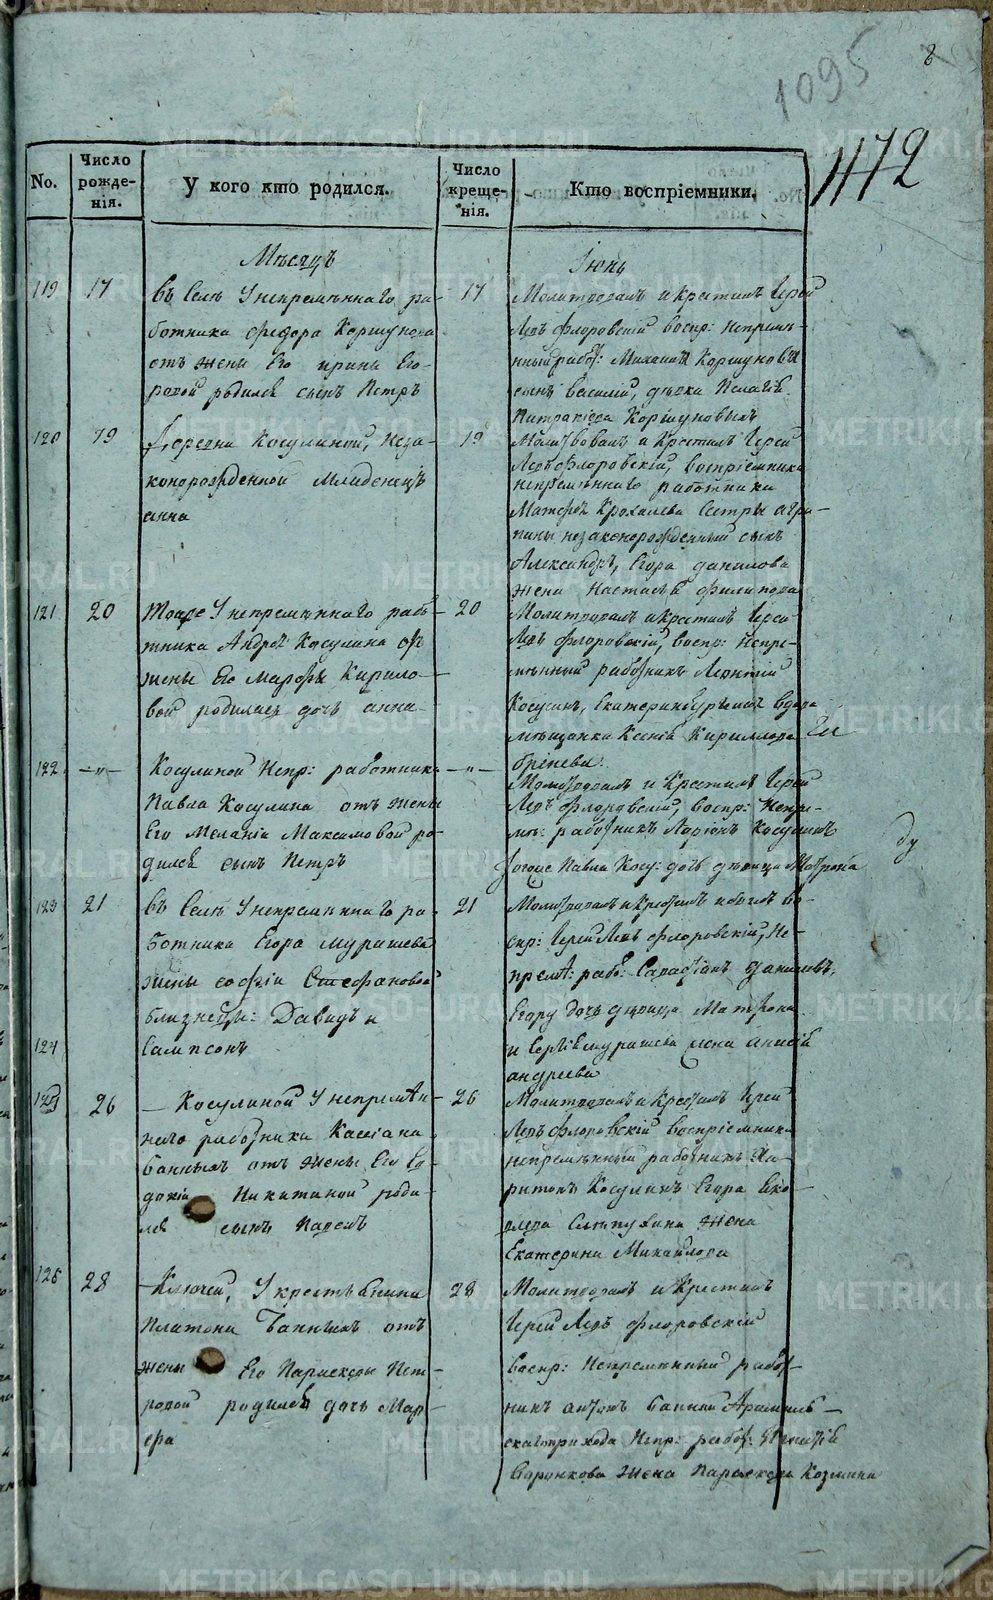 8
1095
1172
No.
Число рожде-нія.
У кого кто родился.
Число креще-нія.
Кто воспріемники.
Мѣсяцъ
Іюнь
119
17
Въ Селѣ У непремѣннаго ра-
ботника Федора Коршунова
отъ жены Его Ирины Его-
ровой родился сынъ Петръ
17
Молитвовалъ и крестилъ Іерей
Левъ Флоровскій воспр: непремѣ-
нный работ: Михаила Коршунова
сынъ Василій, дѣвка Пелагія
Коршуновыхъ
120
19
Деревни Косулиной, Неза-
конорожденной Младенецъ
анна
19
Молитвовалъ и Крестилъ Іерей
Левъ Флоровскій, воспріемники
непремѣннаго работника
Матфея Крохалева Сестры агри-
пины незаконорожденный сынъ
Александръ, Егора данилова
жена Настасья Филипова
121
20
Тоже У непремѣннаго рабо-
тника Андрея Косулина отъ
жены Его Марфы Кирило-
вой родилась дочь анна
20
Молитвовалъ и крестилъ Іерей
Левъ Флоровскій, воспр: непре-
мѣнный работникъ Леонтій
Косулинъ, Екатеринбургская вдова
мѣщанка Ксенія Кириллова
122
—"—
Косулиной Непр: работника
Павла Косулина отъ жены
Его Меланіи Максимовой ро-
дился сынъ Петръ
—"—
Молитвовалъ и Крестилъ Іерей
Левъ Флоровскій, воспр: Непре-
мѣн: работникъ Ларіонъ Косулинъ
Тогоже Павла Косу: дочь дѣвица Матрона
123
21
Въ Селѣ У непремѣннаго ра-
ботника Егора мурашева
жены софіи Стефановой
близнецы: Давидъ и
124
Сампсонъ
21
Молитвовалъ и крестилъ во-
спр: Іерей Левъ Флоровскій, Не-
премѣ: рабо:
дочь дѣвица Матрона
и мурашева жена анисія
андреева
125
26
— Косулиной У непремѣн-
наго работника Кассіана
Банныхъ отъ жены Его Ев-
докіи Никитиной роди-
лся сынъ Павелъ
26
Молитвовалъ и Крестилъ Іерей
Левъ Флоровскій воспріемники
непремѣнный работникъ Ха-
ритонъ Косулинъ Егора Яко-
влева жена
Екатерина Михайлова
126
28
— Ключей, У крестьянина
Платона Банныхъ отъ
жены Его Параскевы Пет-
ровой родилась дочь Мар-
фа
28
Молитвовалъ и Крестилъ
Іерей Левъ Флоровскій
воспр: Непремѣнный работ-
никъ антонъ Банныхъ Арамиль-
скаго прихода Непр: работ: Игнатія
Воронкова жена Параскева Козмина